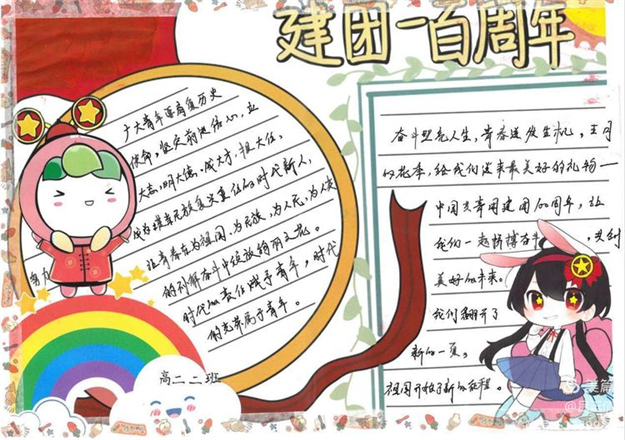 建团一百周年
广大青年要肩负历史
使命,坚定前进信心,立
大志、明大德、成大才、担大任,
努力成为堪当民族复兴重任的时代新人,
让青春在为祖国、为民族、为人民、为
的不懈奋斗中绽放绚丽之花。
时代的责任赋予青年,时代
的光荣属于青年。
高二二班
奋斗照亮人生,青春迸发生机,五月
的花季,给我们送来最美好的礼物一
中国共青团建团100周年,让
我们一起拼搏奋斗,共创
美好的未来。
我们翻开了
新的一页,
祖国开启了新的征程。